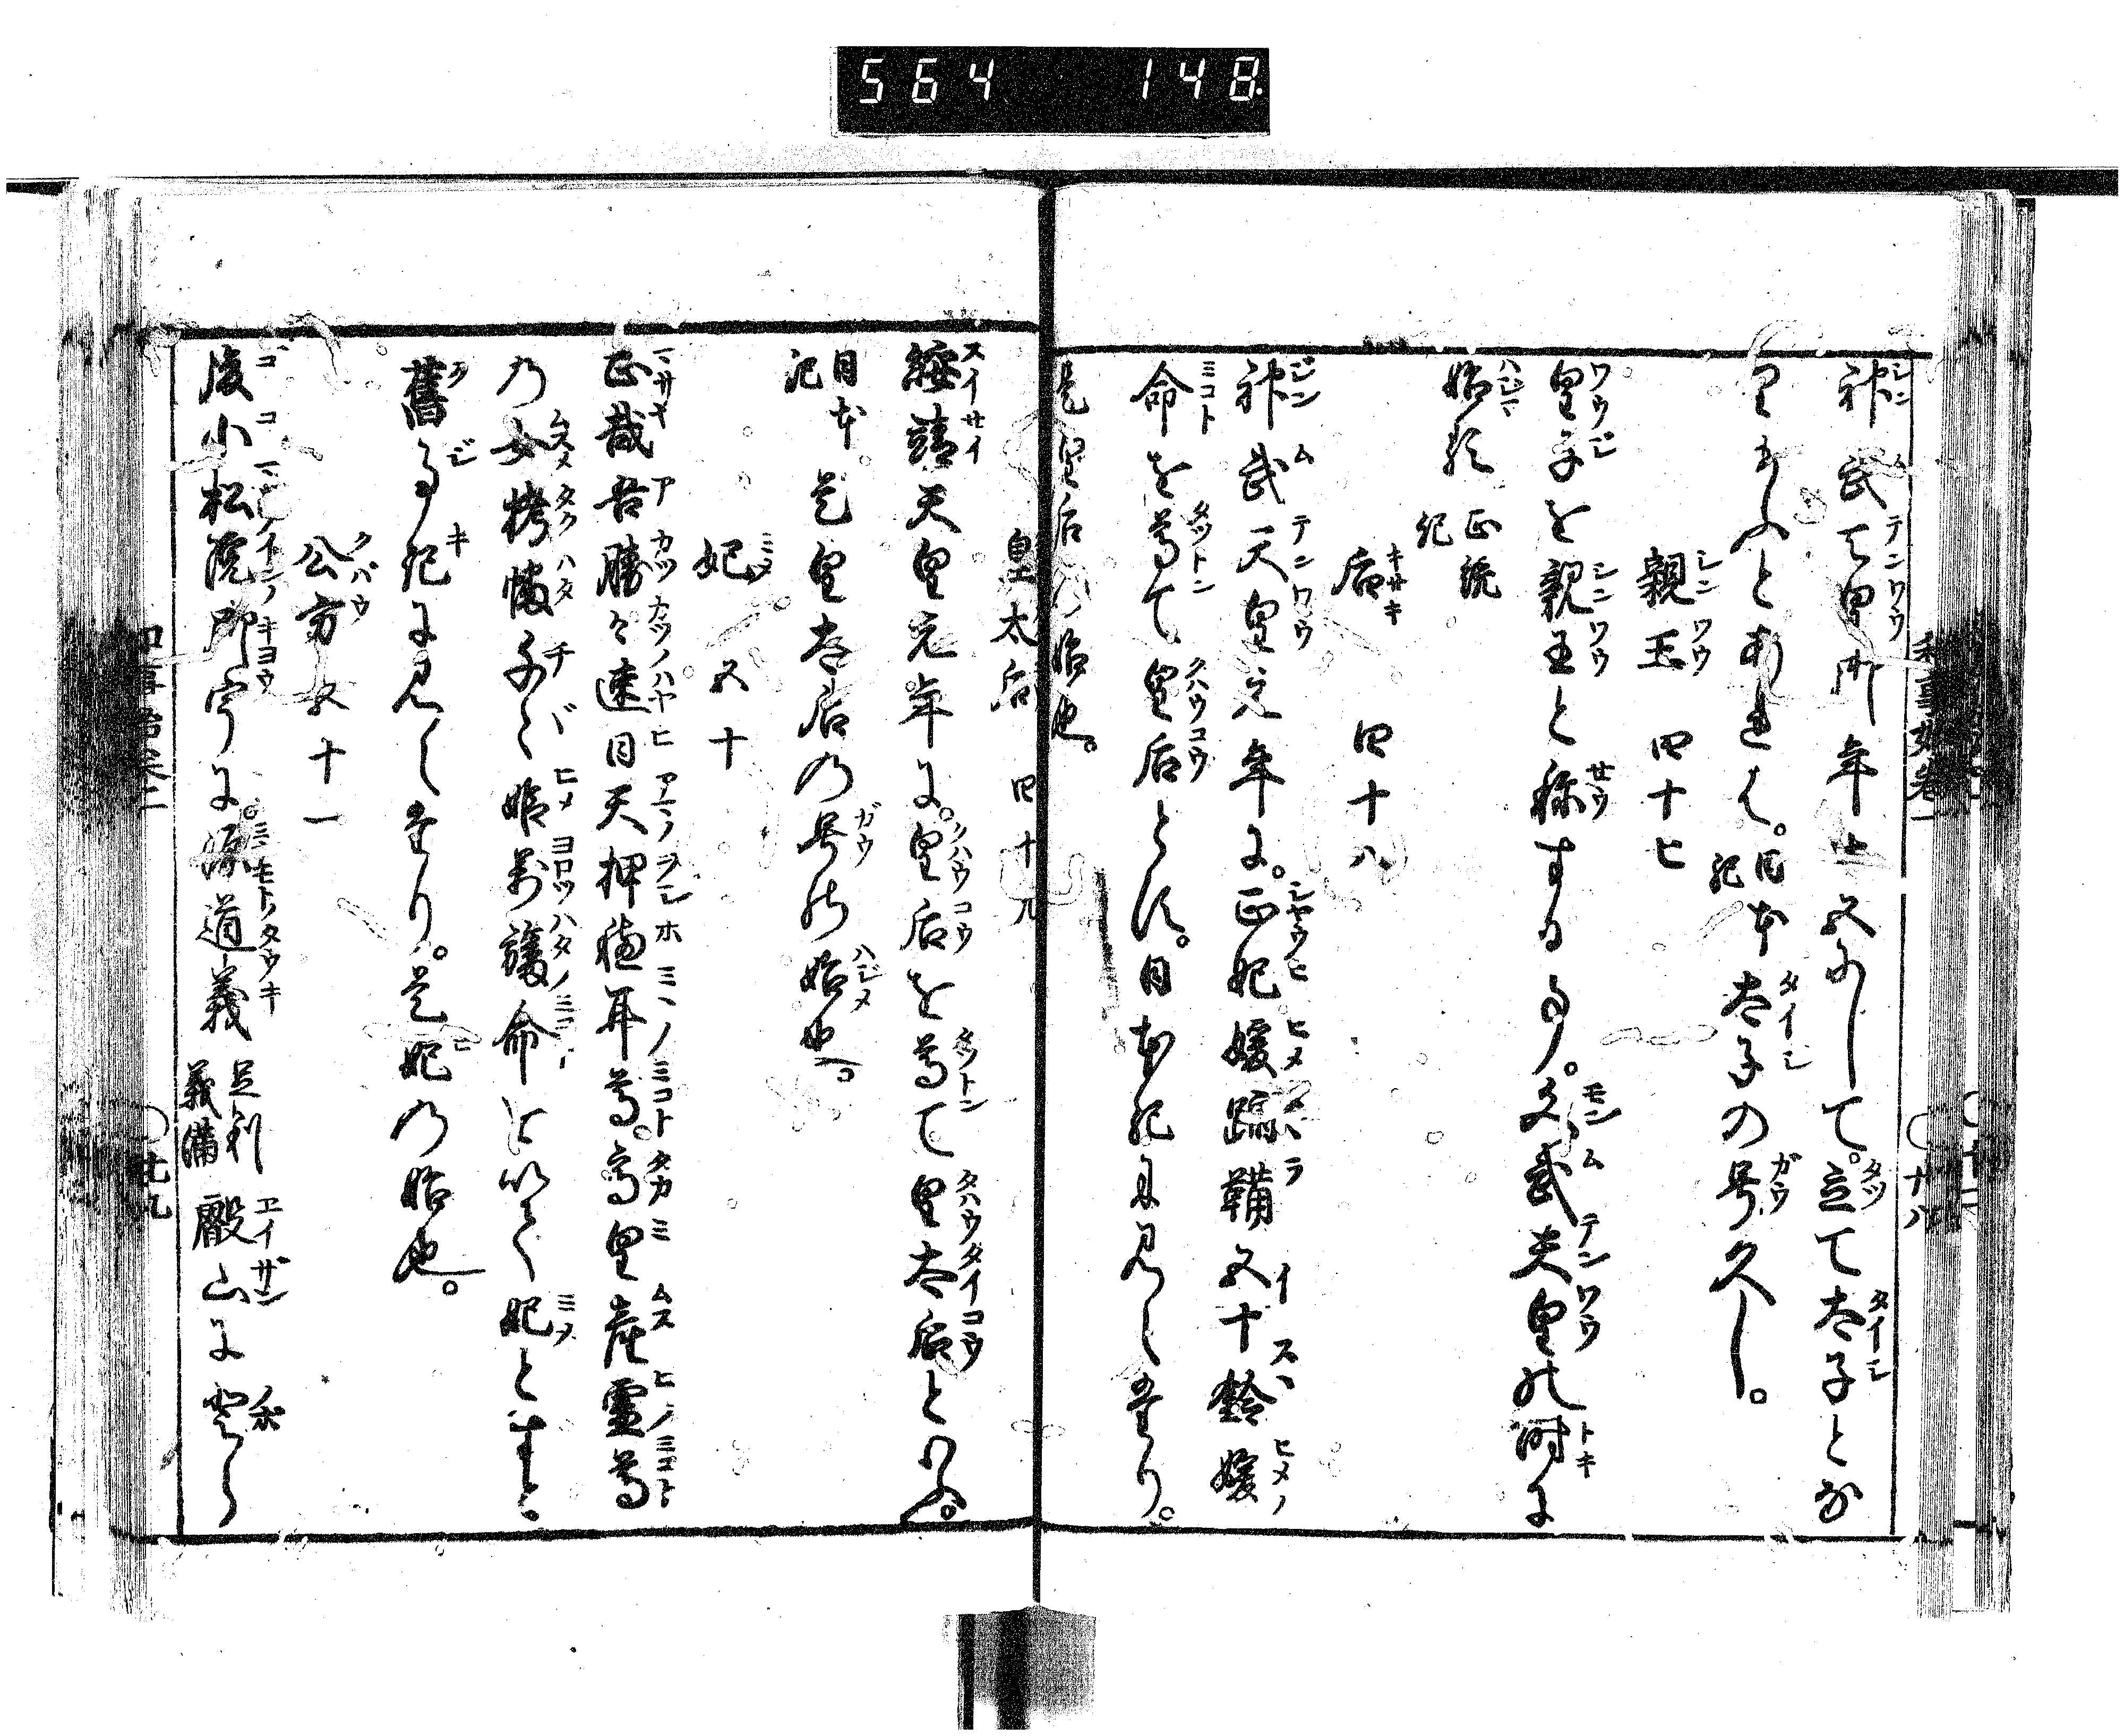 564 148.
神武天皇御年十五にして。立て太子とな
り玉ふとあれは。日本紀太子の号久し。
親王 四十七
皇子を親王と称する事。文武天皇の時に
始る 正統紀
后 四十八
神武天皇元年に。正妃媛蹈鞴五十鈴媛
命を尊て皇后とす。日本紀に見えたり。
是皇后の始也。
皇太后 四十九
綏靖天皇元年に。皇后を尊て皇太后とのふ。
日本紀 是皇太后の号の始也。
妃 五十
正哉吾勝々速日天押穂耳尊。高皇産霊尊
の女栲幡千々姫万幡命を以て妃とす。
舊事紀に見えたり。是妃の始也。
公方 五十一
後小松院御宇に。源道義 足利義満 叡山に登ら